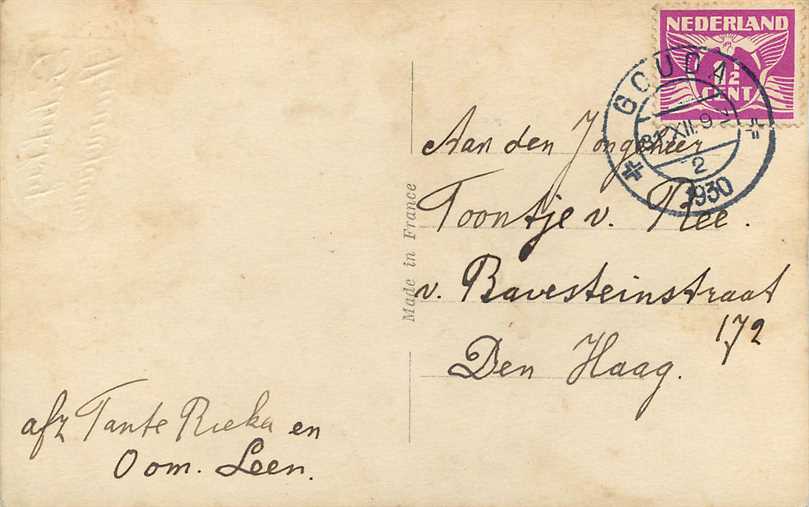 NEDERLAND
1½
CENT
GOUDA
31 XII. 9
2
1930
Aan den Jongeheer
Toontje v. Ree.
v. Bavesteinstraat
172
Den Haag.
Made in France
afz Tante Rieka en
Oom. Leen.